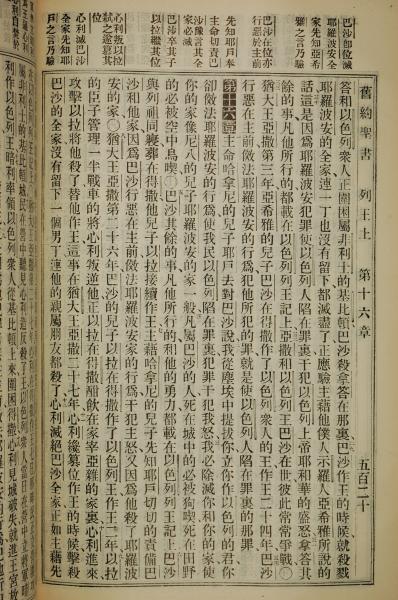 舊約聖書　列王上　第十六章　五百二十
巴沙卽位滅
耶羅波安全
家先知亞希
雅之言乃驗
巴沙在位亦
行惡於主前
先知耶戶奉
主命切責巴
沙豫言其全
家必滅
巴沙卒其子
以拉繼其位
心利叛以拉
弑之遂簒其
位
心利滅巴沙
全家先知耶
答和以色列衆人正圍困屬非利士的基比頓巴沙殺拿答在那裏巴沙作王的時候就殺戮
耶羅波安的全家連一丁也沒有留下都滅盡了正應驗主藉他僕人示羅人亞希雅所說的
話這是因爲耶羅波安犯罪使以色列人陷在罪裏干犯以色列上帝耶和華的盛怒拿答其
餘的事凡他所行的都載在以色列列王記上亞撒和以色列王巴沙在世彼此常常爭戰○
猶大王亞撒第三年亞希雅的兒子巴沙在得撒作了以色列衆人的王作王二十四年巴沙
行惡在主前倣法耶羅波安的行爲犯他所犯的罪就是使以色列人陷在罪裏的那罪
第十六章主命哈拿尼的兒子耶戶去對巴沙說我從塵埃中提拔你立你作以色列的君你
卻倣法耶羅波安的行爲使我民以色列人陷在罪裏犯罪干犯我怒我必除滅你和你的家使
你的家像尼八的兒子耶羅波安的家一般凡屬巴沙的人死在城中的必被狗喫死在田野
的必被空中鳥喫○巴沙其餘的事凡他所行的和他的勇力都載在以色列列王記上巴沙
與列祖同寢葬在得撒他兒子以拉接續作王主藉哈拿尼的兒子先知耶戶切切的責備巴
沙和他家因爲巴沙行惡在主前倣法耶羅波安家的行爲干犯主怒又因爲他殺了耶羅波
安的家○猶大王亞撒第二十六年巴沙的兒子以拉在得撒作了以色列王作王二年以拉
的臣子管理一半戰車的將心利叛逆他正以拉在得撒酣飲在家宰亞雜的家裏心利進來
攻擊以拉將他殺了替他作王這事在猶大王亞撒二十七年心利纔簒位作王的時候擊殺
巴沙的全家沒有留下一個男丁連他的親屬朋友都殺了心利滅絕巴沙全家正如主藉先